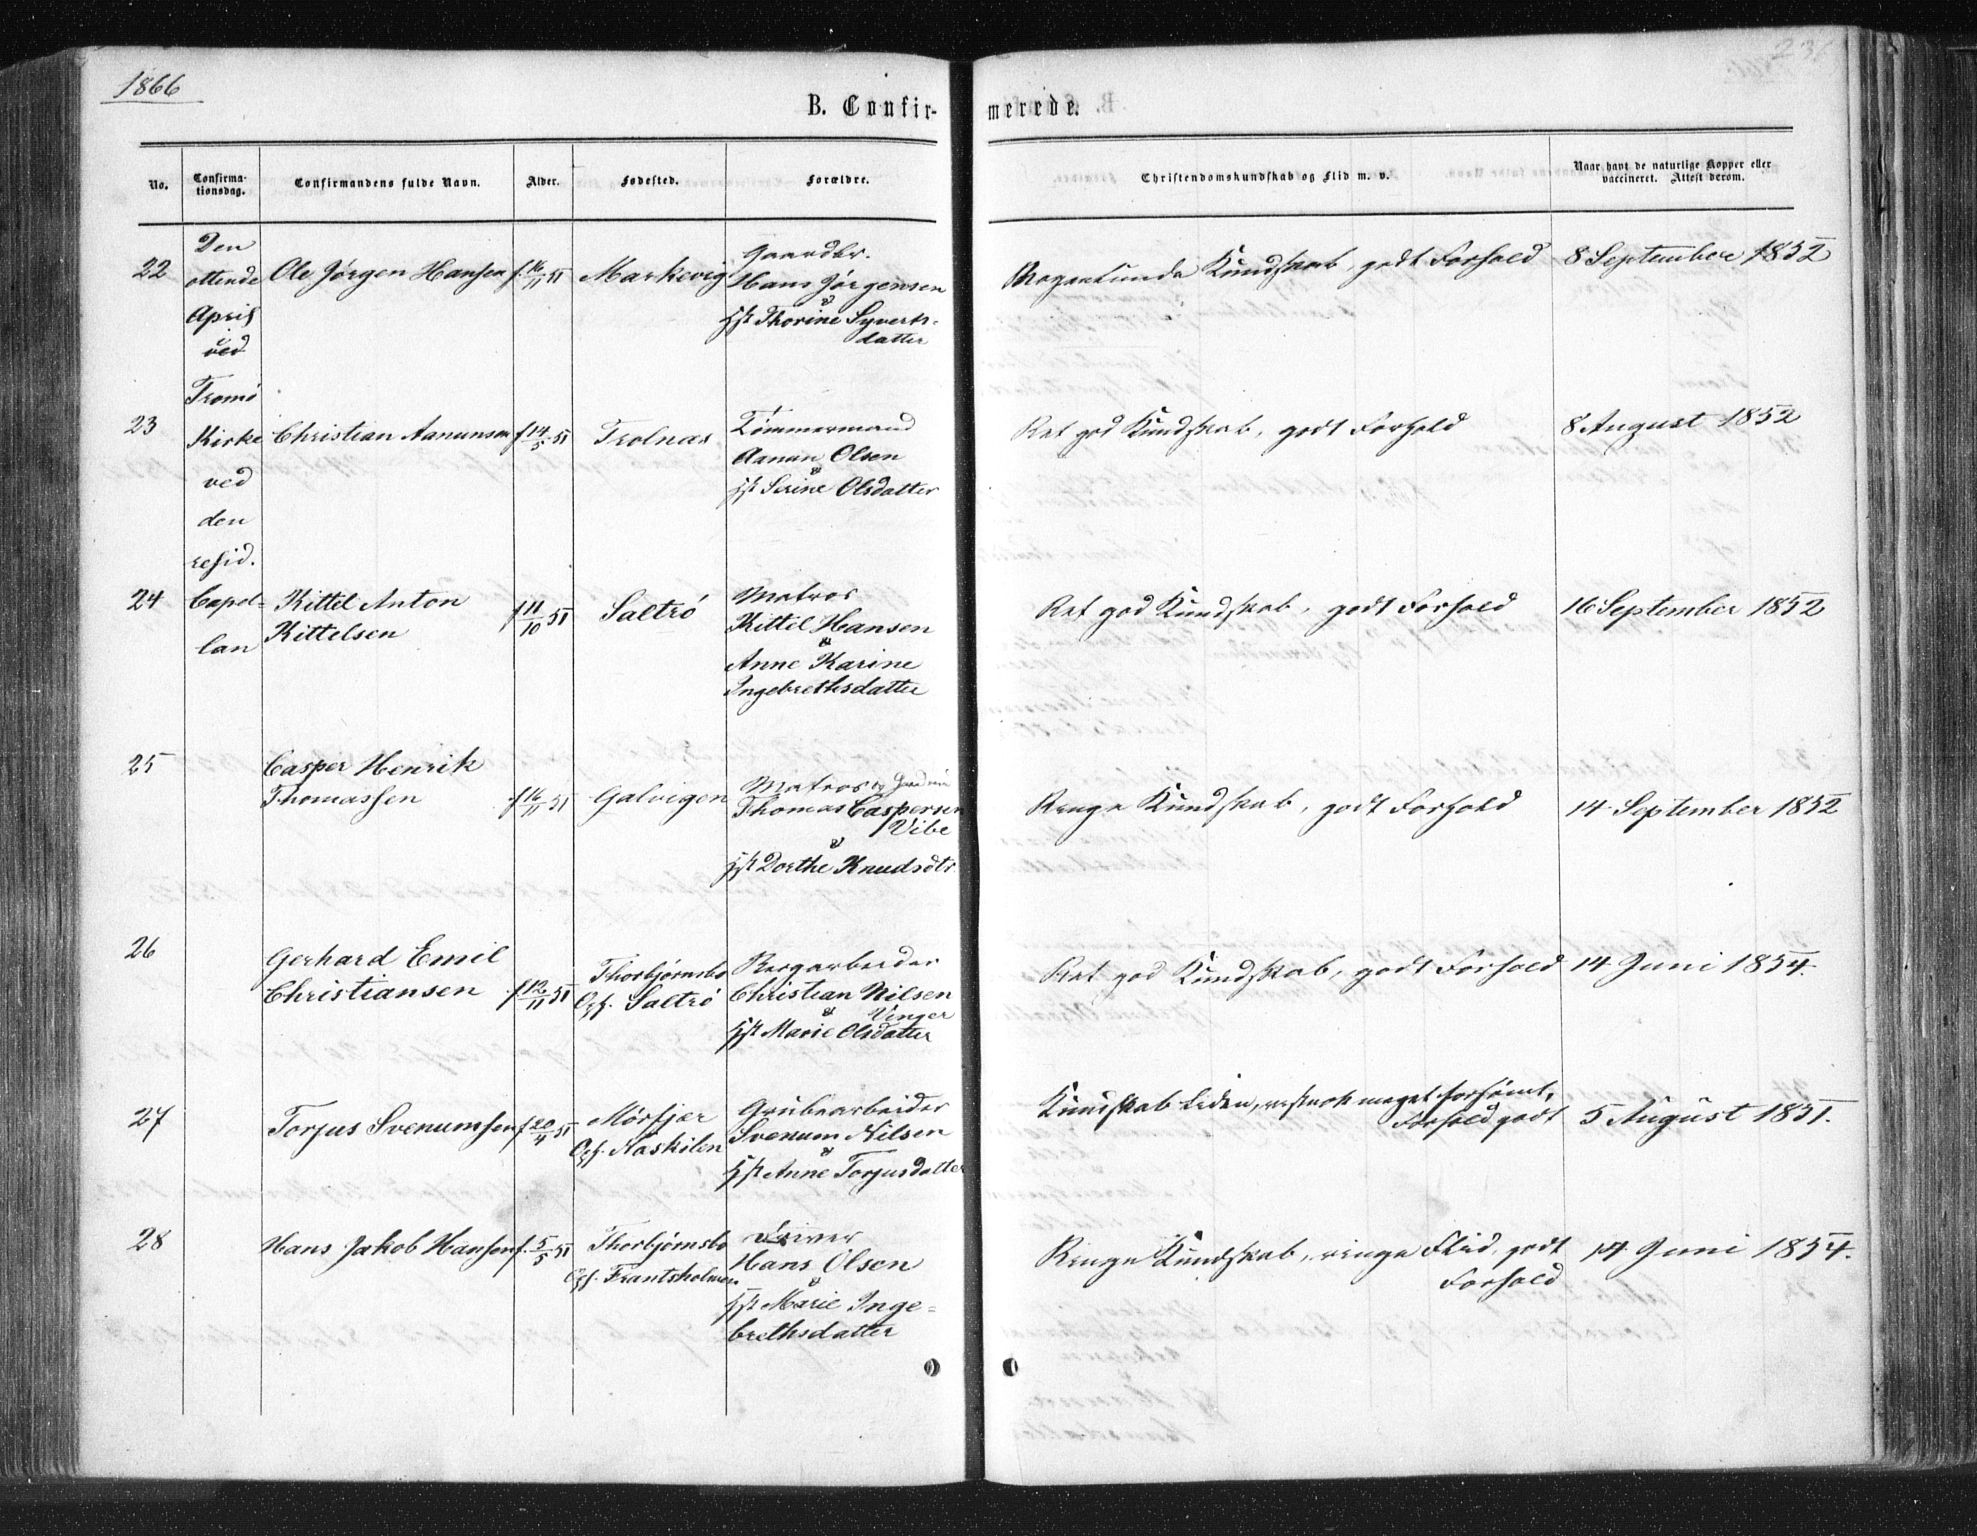 1866
231
B. Confir-
merede.
No.
Confirma-
tionsdag.
Confirmandens fulde Navn.
Alder.
Fødested.
Forældre.
Christendomskundskab og Flid m. v.
Naar havt de naturlige Kopper eller
vaccineret. Attest derom.
Den
ottende
April
i
ved
Tromø
Kirke
ved
den
resid.
Capel-
lan
22
Ole Jørgen Hansen
f. 16/11 51
Markevig
Gaardbr.
Hans Jørgensen
&
Hst Thorine Syverts-
datter
Kundskab, godt Forhold
8 September 1852
23
Christian Aanunsen
f 14/5 51
Trolnæs
Tømmermand
Aanun Olsen
&
Hst Serine Olsdatter
Ret god Kundskab, godt Forhold
8 August 1852
24
Kittel Anton
Kittelsen
f 11/10 51
Saltrö
Matros
Kittil Hansen
&
Anne Karine
Ingebrethsdatter
Ret god Kundskab, godt Forhold
16 September 1852
25
Casper Henrik
Thomassen
f 16/11 51
Galvigen
Matros og
Thomas Caspersen
Vibe
&
Hst Dorthe Knudsdtr
Ringe Kundskab, godt Forhold
14 September 1852
26
Gerhard Emil
Christiansen
f 12/11 51
Thorbjørnsbo
Opf. Saltrö
Bergarbeider
Christian Nilsen
Vinger
&
Hst Marie Olsdatter
Ret god Kundskab, godt Forhold
14 Juni 1854.
27
Torjus Svenumsen
f 20/4 51
Mörfjær
Opf. Naskilen
Grubearbeider
Svenum Nilsen
&
Hst Anne Torjusdatter
Kundskab liden, meget forsømt,
Forhold godt
5 August 1851.
28
Hans Jakob Hansen
f. 5/5 51
Thorbjørnsbo
Opf. Frantsholmen
Skriver
Hans Olsen
&
Hst Marie Inge-
brethsdatter
Ringe Kundskab, ringe Flid, godt
Forhold
14 Juni 1854.